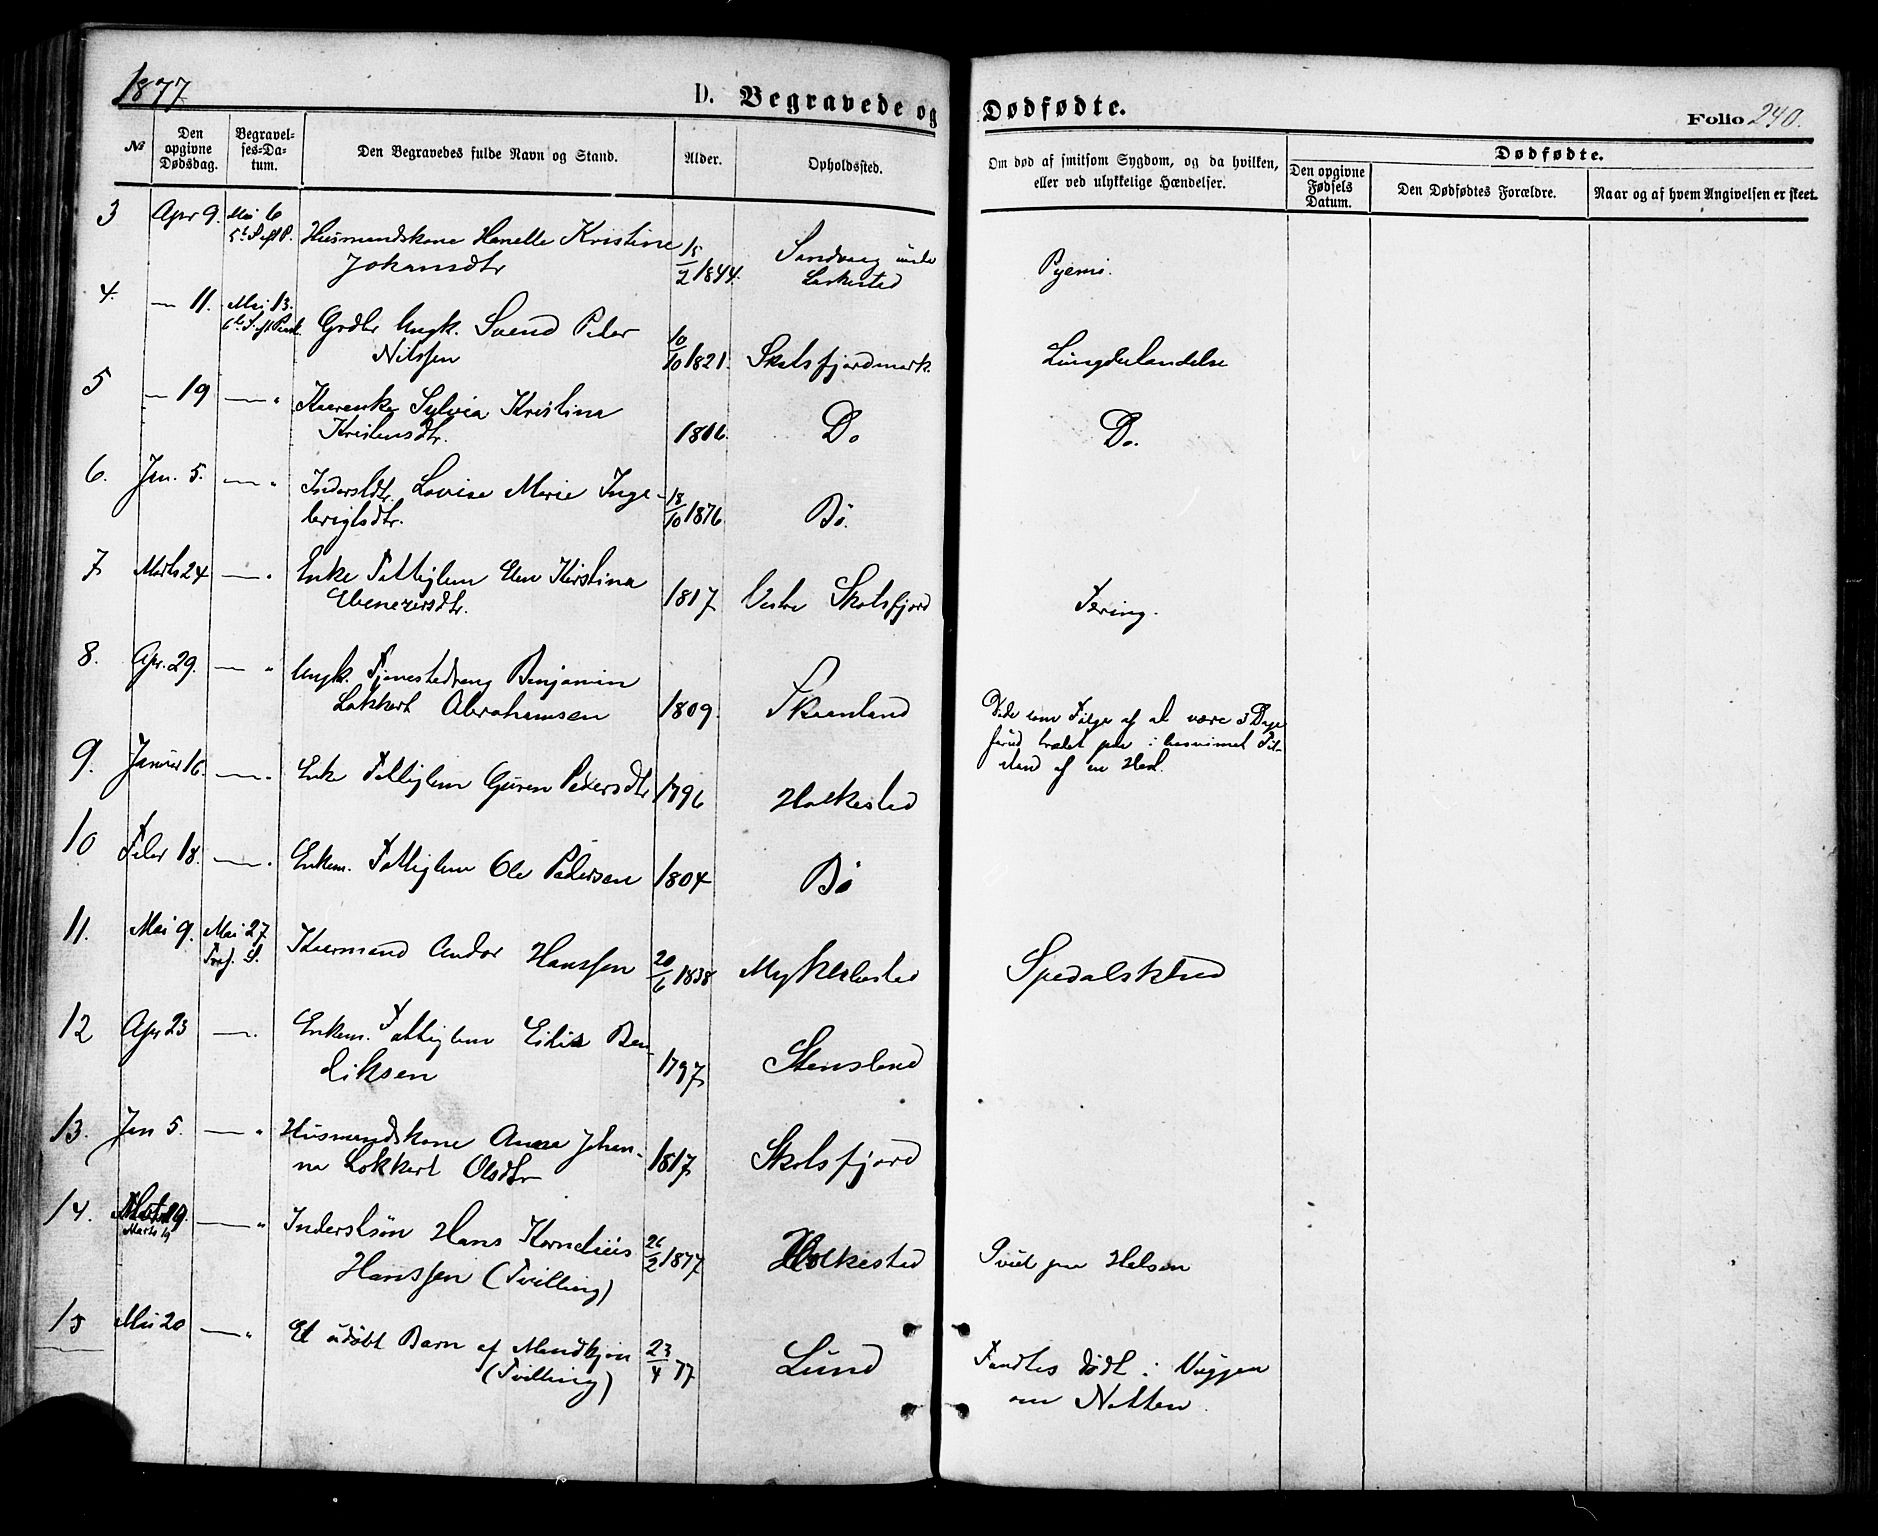 1877
D. Begravede og Dødfødte.
Folio 240.
№
Den opgivne Dødsdag.
Begravelses-Datum.
Den Begravedes fulde Navn og Stand.
Alder.
Opholdssted.
Om død af smitsom Sygdom, og da hvilken, eller ved ulykkelige Hændelser.
Dødfødte.
Den opgivne Fødsels Datum.
Den Dødfødtes Forældre.
Naar og af hvem Angivelsen er skeet.
3 Apr 9. Mai 6 Husmandskone Hanelle Kristine 15/2 1844.
Johansdtr
Pyemi.
4. — 11. Mai 13. Grdbr Ungk. Svend Peder
Nilssen 10/10 1821. Skotsfjordmark. Lungebetændelse
5 — 19 — " Kaarenke Sylvia Kristina
Kristensdtr. 1806. Do Do.
6. Jan. 5. — " Inderstdtr. Lovise Marie Inge-
brigtsdtr. 18/10 1876 Bø.
7 Marts 24 — " Enke Fattiglem Elen Kirstina
Ebenezersdtr. 1817 Vestre Skotsfjord Tæring.
8. Apr. 29. — " Ungk. Tjenestedreng Benjamin
Lokkert Abrahamsen 1809. Skaanland Døde som Følge af at være 3 Dage
forud traadt paa i besvimet Til-
stand af en Hest.
9. Januar 16. — " Enke Fattiglem Guren Pedersdtr 1796 Holkestad
10 Febr 18. — " Enkem. Fattiglem Ole Pedersen 1804 Bø
11. Mai 9. Mai 27 Kaarmand Andor Hanssen 20/6 1838 Myklebostad Spedalskhed
12 Apr 23 — " Enkem. Fattiglem Eilia Ben-
diksen 1797 Stensland
13. Jan 5. — " Husmandskone Anna Johan-
na Lokkert Olsdtr 1817 Skotsfjord
14. Marts 19 — " Inderstsøn Hans Kornelius
Hanssen (Tvilling) 26/2 1877 Holkestad Ondt paa Halsen
15 Mai 20 — " Et udøbt Barn af Mandkjøn
(Tvilling) 23/4 77 Lund Fandtes dødt i Vuggen
om Natten.